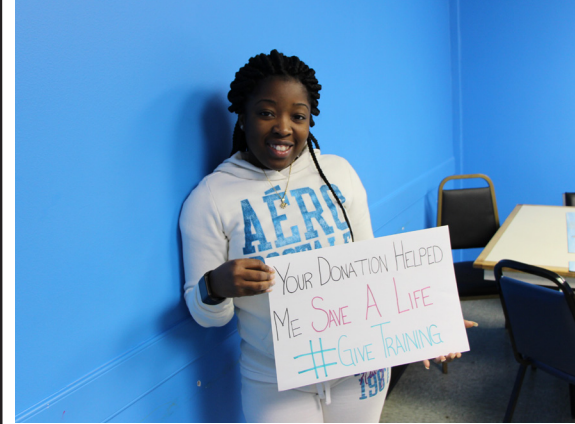 AÉRO
YOUR DONATION HELPED
ME SAVE A LIFE
#GIVE TRAINING